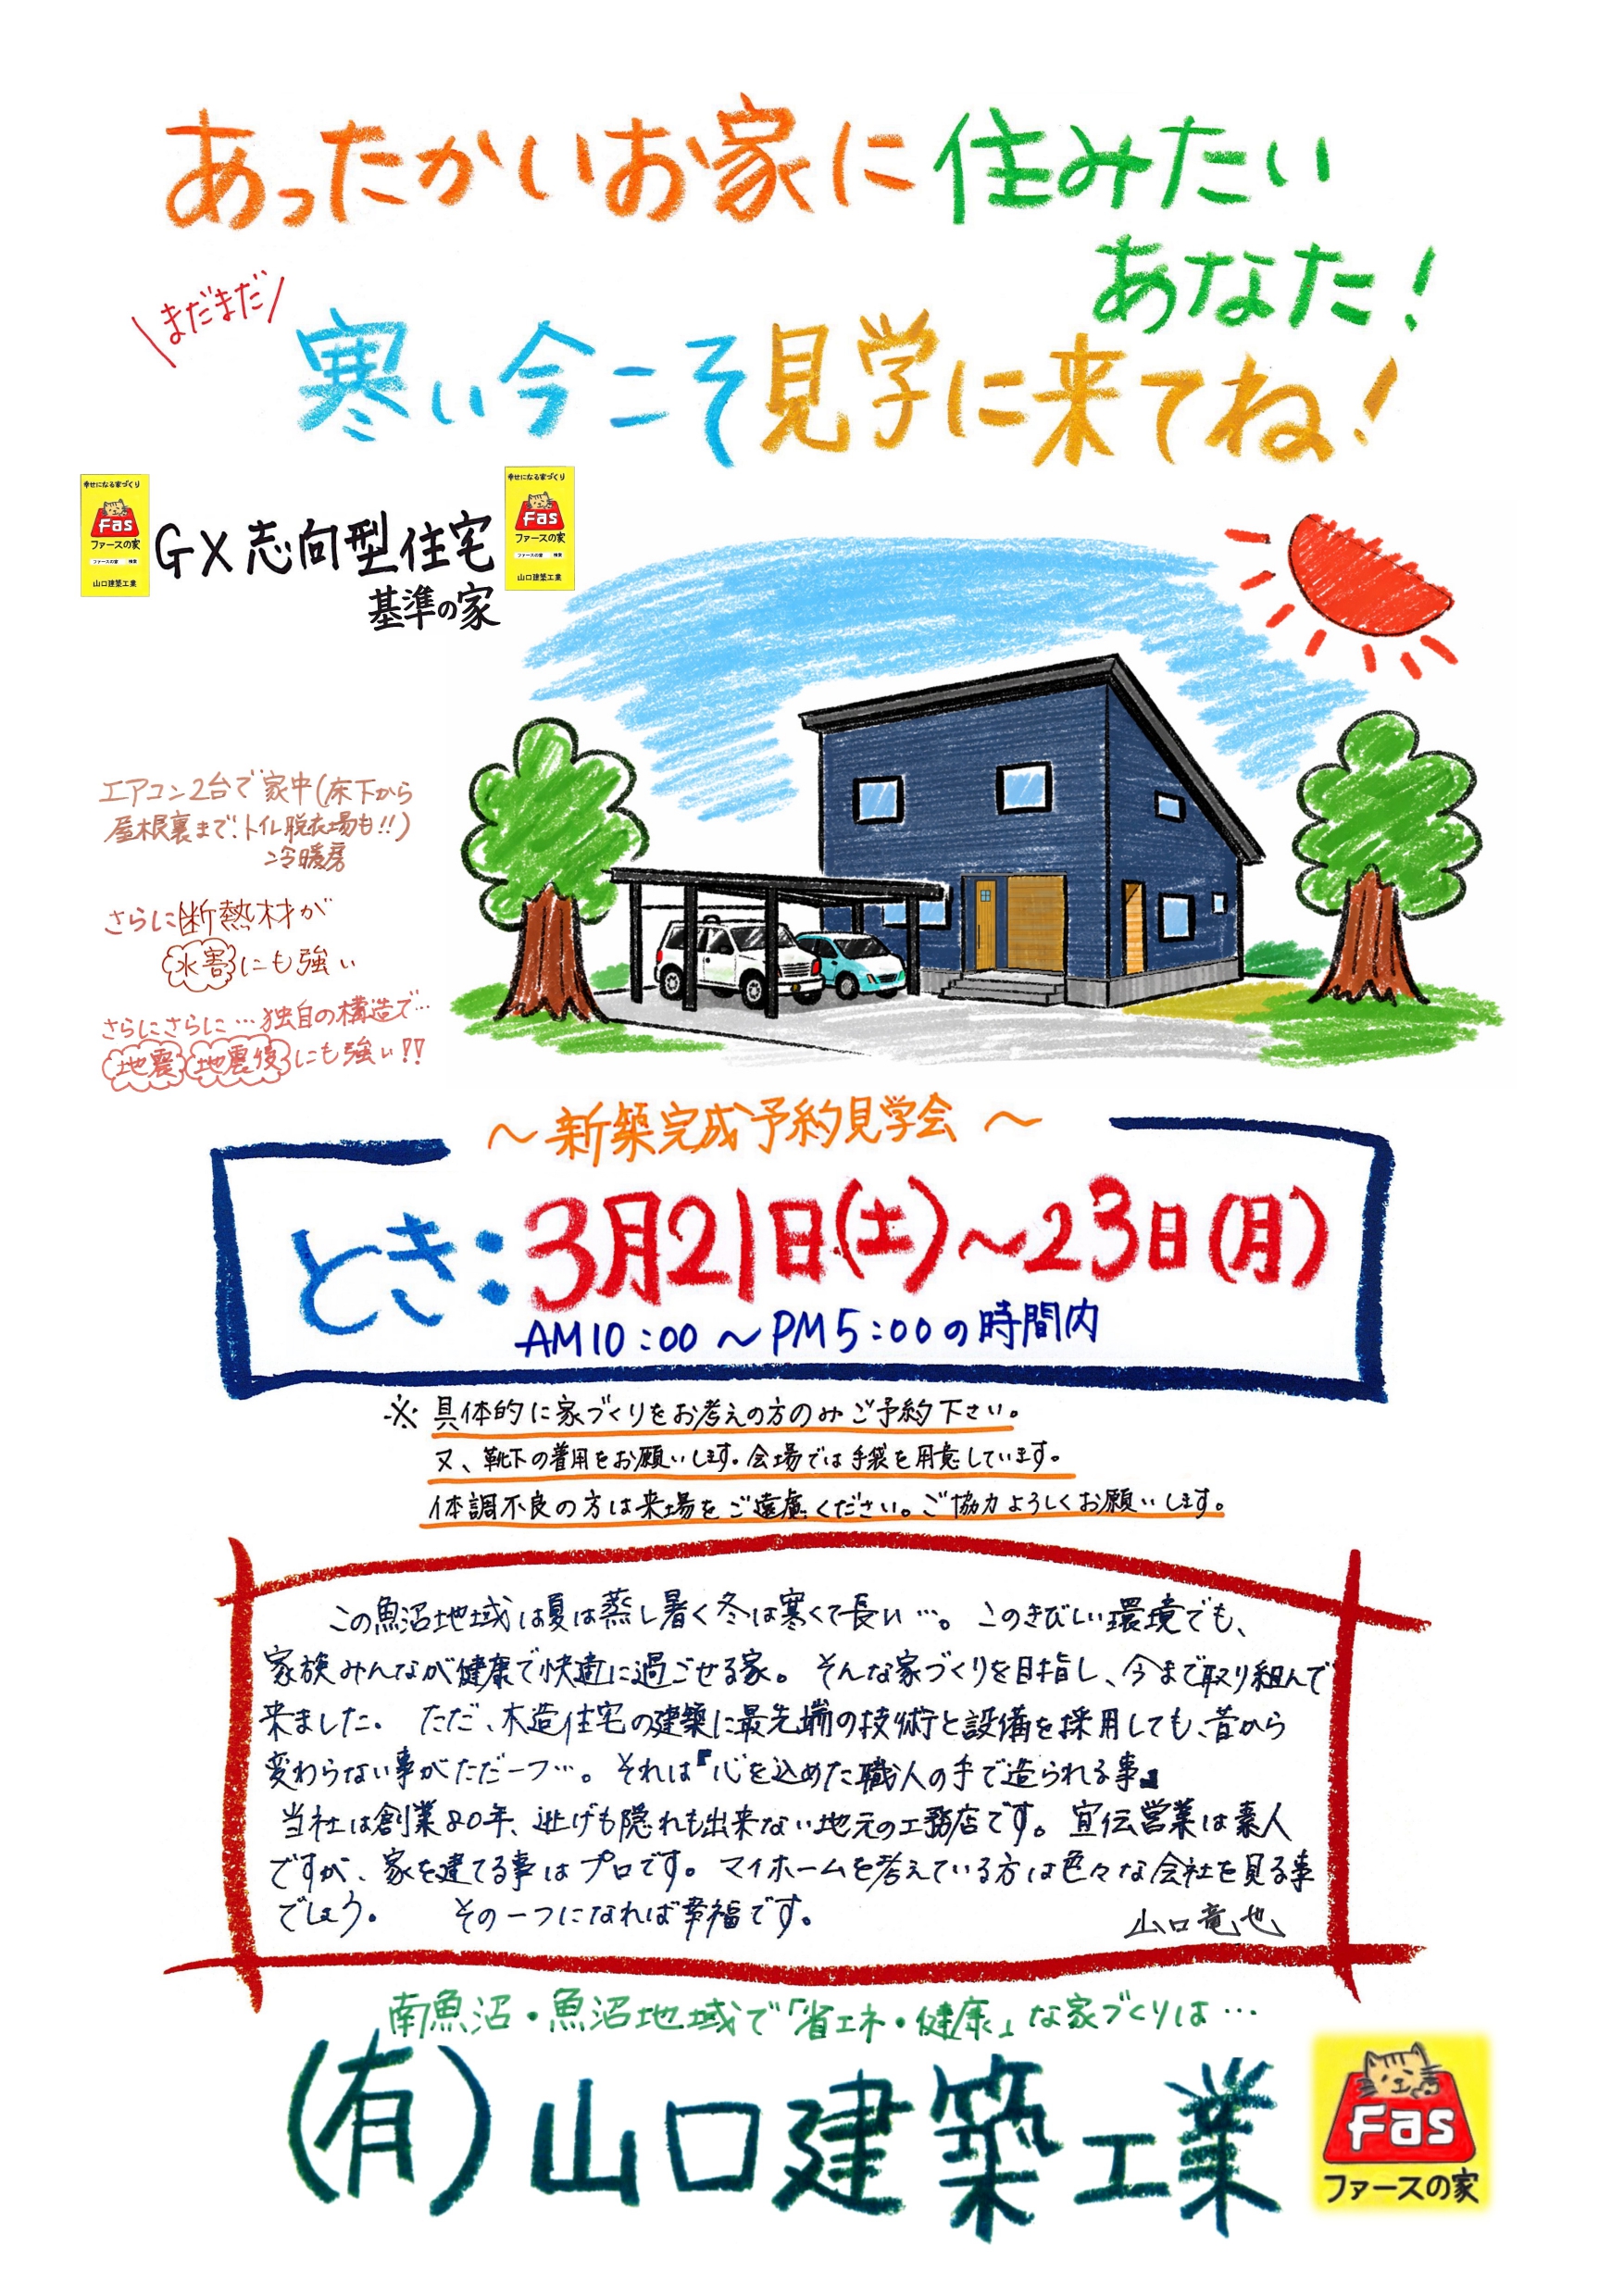 あったかいお家に住みたい
あなた！
まだまだ
寒い今こそ見学に来てね！
幸せになる家づくり
Fas
ファースの家
ファースの家 検索
山口建築工業
GX志向型住宅
基準の家
幸せになる家づくり
Fas
ファースの家
ファースの家 検索
山口建築工業
エアコン2台で家中(床下から
屋根裏まで、トイレ脱衣場も!!)
冷暖房
さらに断熱材が
水害にも強い
さらにさらに…独自の構造で…
地震 地震後にも強い!!
～新築完成予約見学会～
とき：3月21日(土)～23日(月)
AM10:00～PM5:00の時間内
※ 具体的に家づくりをお考えの方のみご予約下さい。
又、靴下の着用をお願いします。会場では手袋を用意しています。
体調不良の方は来場をご遠慮ください。ご協力よろしくお願いします。
この魚沼地域は夏は蒸し暑く冬は寒くて長い…。このきびしい環境でも、
家族みんなが健康で快適に過ごせる家。そんな家づくりを目指し、今まで取り組んで
来ました。ただ、木造住宅の建築に最先端の技術と設備を採用しても、昔から
変わらない事がただ一つ…。それは『心を込めた職人の手で造られる事』
当社は創業80年、逃げも隠れも出来ない地元の工務店です。宣伝営業は素人
ですが、家を建てる事はプロです。マイホームを考えている方は色々な会社を見る事
でしょう。その一つになれば幸福です。
山口竜也
南魚沼・魚沼地域で「省エネ・健康」な家づくりは…
(有)山口建築工業
Fas
ファースの家